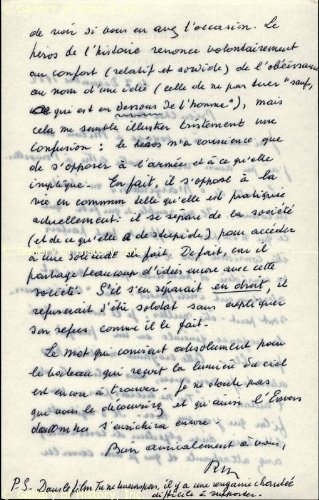 de voir si vous en avez l'occasion. Le
héros de l'histoire renonce volontairement
au confort (relatif et sordide) de l'obéissance
au nom d'une idée (celle de ne pas tuer "sauf
ce qui est en dessous de l'homme"), mais
cela me semble illustrer tristement une
confusion : le héros n'a conscience que
de s'opposer à l'armée et à ce qu'elle
implique. En fait, il s'oppose à la
vie en commun telle qu'elle est pratiquée
actuellement. il se sépare de la société
(et de ce qu'elle a de stupide) pour accéder
à une solitude de fait. De fait, car il
partage beaucoup d'idées encore avec cette
société. S'il s'en séparait en droit, il
refuserait d'être soldat sans expliquer
son refus comme il le fait.
Le mot qui convient absolument pour
le bateau qui reçoit la lumière du ciel
est encore à trouver. Je ne doute pas
que vous le découvriez et qu'ainsi l'Envers
s'enrichira encore.
Bien amicalement à vous,
P.S. Dans le film Tu ne tueras pas, il y a une rengaine chantée
difficile à supporter